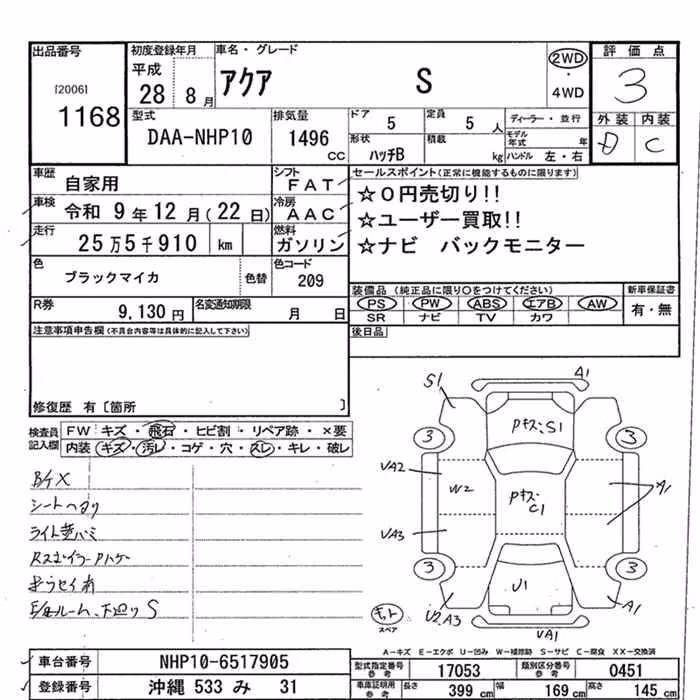 出品番号 初度登録年月 車名・グレード 評価点
[2006] 1168
平成 28 8月
アクア S
2WD ・ 4WD
3
外装 内装
D C
型式 排気量 ドア 5 定員 5人 ディーラー・並行
DAA-NHP10 1496 CC 形状 ハッチB 積載 kg モデル年式 年
ハンドル 左・右
車歴 自家用 シフト FAT
車検 令和 9年12月(22日) 冷房 AAC
走行 25万5千910 km 燃料 ガソリン
色 ブラックマイカ 色替 色コード 209
R券 9,130円 名変通知期限 月 日
セールスポイント(正常に機能するものに限ります)
☆0円売切り!!
☆ユーザー買取!!
☆ナビ バックモニター
装備品 (純正品に限り○をつけてください) 新車保証書
PS PW ABS エアB AW 有・無
SR ナビ TV カワ
後日品
注意事項申告欄(不具合内容等は具体的に記入して下さい)
修復歴 有[箇所 ]
検査員記入欄 FW キズ・飛石・ヒビ割・リペア跡・×要
内装 キズ・汚レ・コゲ・穴・スレ・キレ・破レ
シートヘタリ
S1 A1
PキズS1
3 3
VA2 W2 Pキズ C1 A1
VA3
3 3
U1
U2.A3 A1
VA1
スペア
A-キズ E-エクボ U-凹み W-補修跡 S-サビ C-腐食 XX-交換済
車台番号 NHP10-6517905
登録番号 沖縄 533 み 31
型式指定番号 参考 17053 類別区分番号 参考 0451
車庫証明用 参考 長さ 399 cm 幅 169 cm 高さ 145 cm